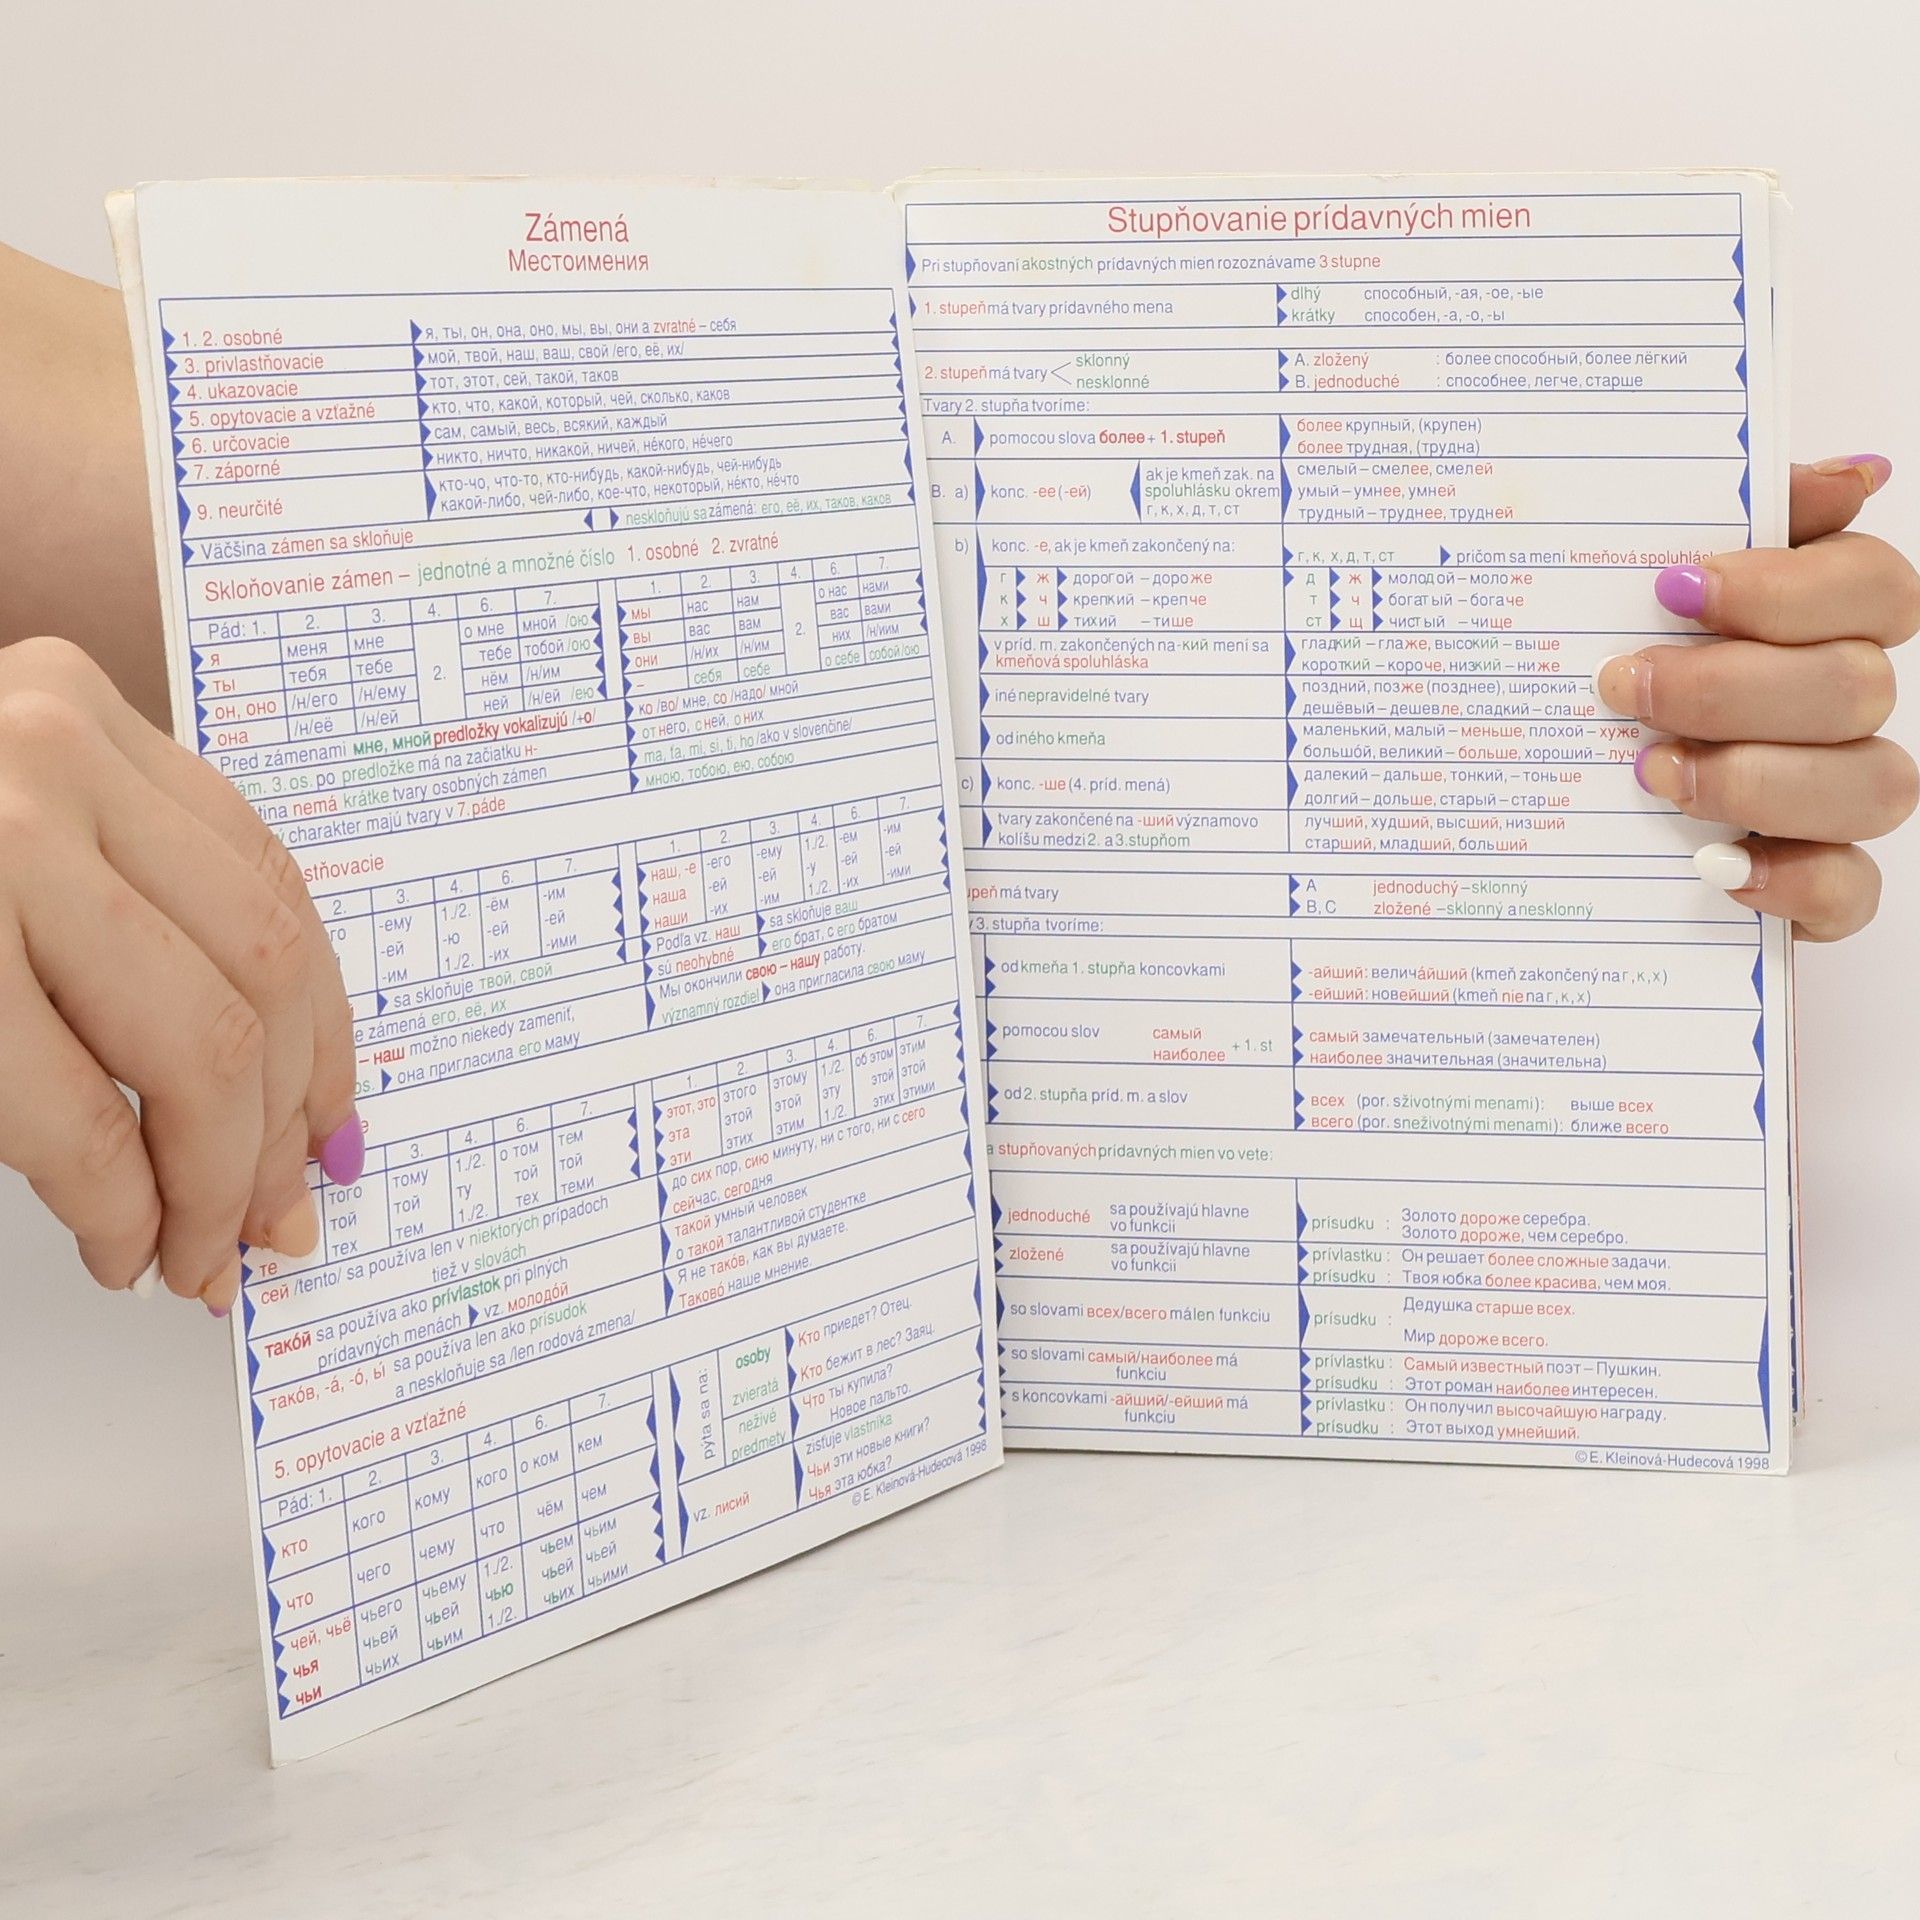 Zámená
Местоимения
1. 2. osobné
я, ты, он, она, оно, мы, вы, они a zvratné – себя
3. privlastňovacie
мой, твой, наш, ваш, свой /его, её, их/
4. ukazovacie
тот, этот, сей, такой, таков
5. opytovacie a vzťažné
кто, что, какой, который, чей, сколько, каков
6. určovacie
сам, самый, весь, всякий, каждый
7. záporné
никто, ничто, никакой, ничей, не́кого, не́чего
9. neurčité
кто-чо, что-то, кто-нибудь, какой-нибудь, чей-нибудь
какой-либо, чей-либо, кое-что, некоторый, не́кто, не́что
Väčšina zámen sa skloňuje
neskloňujú sa zámená: его, её, их, таков, каков
Skloňovanie zámen – jednotné a množné číslo 1. osobné 2. zvratné
Pád: 1. 2. 3. 4. 6. 7.
я меня мне о мне мной /ою
ты тебя тебе 2. тебе тобой /ою
он, оно /н/его /н/ему нём /н/им
она /н/её /н/ей ней /н/ей /ею
1. 2. 3. 4. 6. 7.
мы нас нам о нас нами
вы вас вам 2. вас вами
они /н/их /н/им них /н/иим
– себя себе о себе собой/ою
Pred zámenami мне, мной predložky vokalizujú /+о/
ко /во/ мне, со /надо/ мной
zám. 3. os. po predložke má na začiatku н-
от него, с ней, о них
tina nemá krátke tvary osobných zámen
ma, ťa, mi, si, ti, ho /ako v slovenčine/
charakter majú tvary v 7. páde
мною, тобою, ею, собою
stňovacie
2. 3. 4. 6. 7.
го -ему 1./2. -ём -им
-ей -ю -ей -ей
-им 1./2. -их -ими
1. 2. 3. 4. 6. 7.
наш, -е -его -ему 1./2. -ем -им
наша -ей -ей -у -ей -ей
наши -их -им 1./2. -их -ими
sa skloňuje твой, свой
Podľa vz. наш sa skloňuje ваш
e zámená его, её, их
sú neohybné его брат, с его братом
– наш možno niekedy zameniť,
Мы окончили свою – нашу работу.
os. она пригласила его маму
významný rozdiel она пригласила свою маму
3. 4. 6. 7.
того тому 1./2. о том тем
той той ту той той
те тех тем 1./2. тех теми
1. 2. 3. 4. 6. 7.
этот, это этого этому 1./2. об этом этим
эта этой этой эту этой этой
эти этих этим 1./2. этих этими
сей /tento/ sa používa len v niektorých prípadoch
tiež v slovách
до сих пор, сию минуту, ни с того, ни с сего
сейчас, сегодня
тако́й sa používa ako prívlastok pri plných
prídavných menách vz. молодо́й
такой умный человек
о такой талантливой студентке
тако́в, -а́, -о́, -ы́ sa používa len ako prísudok
a neskloňuje sa /len rodová zmena/
Я не тако́в, как вы думаете.
Таково́ наше мнение.
5. opytovacie a vzťažné
Pád: 1. 2. 3. 4. 6. 7.
кто кого кому кого о ком кем
что чего чему что чём чем
чей, чьё чьего чьему 1./2. чьем чьим
чья чьей чьей чью чьей чьей
чьи чьих чьим 1./2. чьих чьими
pýta sa na:
osoby
Кто приедет? Отец.
zvieratá
Кто бежит в лес? Заяц.
neživé
predmety
Что ты купила?
Новое пальто.
vz. лисий
zisťuje vlastníka
Чьи эти новые книги?
Чья эта юбка?
© E. Kleinová-Hudecová 1998
Stupňovanie prídavných mien
Pri stupňovaní akostných prídavných mien rozoznávame 3 stupne
1. stupeň má tvary prídavného mena
dlhý способный, -ая, -ое, -ые
krátky способен, -а, -о, -ы
2. stupeň má tvary
sklonný
nesklonné
A. zložený : более способный, более лёгкий
B. jednoduché : способнее, легче, старше
Tvary 2. stupňa tvoríme:
A. pomocou slova более + 1. stupeň
более крупный, (крупен)
более трудная, (трудна)
B. a) konc. -ее (-ей)
ak je kmeň zak. na
spoluhlásku okrem
г, к, х, д, т, ст
смелый – смелее, смелей
умый – умнее, умней
трудный – труднее, трудней
b) konc. -е, ak je kmeň zakončený na:
г, к, х, д, т, ст pričom sa mení kmeňová spoluhlásk
г ж дорогой – дороже
к ч крепкий – крепче
х ш тихий – тише
д ж молодой – моложе
т ч богатый – богаче
ст щ чистый – чище
v príd. m. zakončených na -кий mení sa
kmeňová spoluhláska
гладкий – глаже, высокий – выше
короткий – короче, низкий – ниже
iné nepravidelné tvary
поздний, позже (позднее), широкий –
дешёвый – дешевле, сладкий – слаще
od iného kmeňa
маленький, малый – меньше, плохой – хуже
большо́й, великий – больше, хороший – луч
c) konc. -ше (4. príd. mená)
далекий – дальше, тонкий, – тоньше
долгий – дольше, старый – старше
tvary zakončené na -ший významovo
kolíšu medzi 2. a 3. stupňom
лучший, худший, высший, низший
старший, младший, больший
upeň má tvary
A jednoduchý – sklonný
B, C zložené – sklonný a nesklonný
3. stupňa tvoríme:
od kmeňa 1. stupňa koncovkami
-айший: велича́йший (kmeň zakončený na г, к, х)
-ейший: новейший (kmeň nie na г, к, х)
pomocou slov самый
наиболее + 1. st
самый замечательный (замечателен)
наиболее значительная (значительна)
od 2. stupňa príd. m. a slov
всех (por. s životnými menami): выше всех
всего (por. s neživotnými menami): ближе всего
a stupňovaných prídavných mien vo vete:
jednoduché sa používajú hlavne
vo funkcii
prísudku : Золото дороже серебра.
Золото дороже, чем серебро.
zložené sa používajú hlavne
vo funkcii
prívlastku : Он решает более сложные задачи.
prísudku : Твоя юбка более красива, чем моя.
so slovami всех/всего má len funkciu
prísudku : Дедушка старше всех.
Мир дороже всего.
so slovami самый/наиболее má
funkciu
prívlastku : Самый известный поэт – Пушкин.
prísudku : Этот роман наиболее интересен.
s koncovkami -айший/-ейший má
funkciu
prívlastku : Он получил высочайшую награду.
prísudku : Этот выход умнейший.
© E. Kleinová-Hudecová 1998